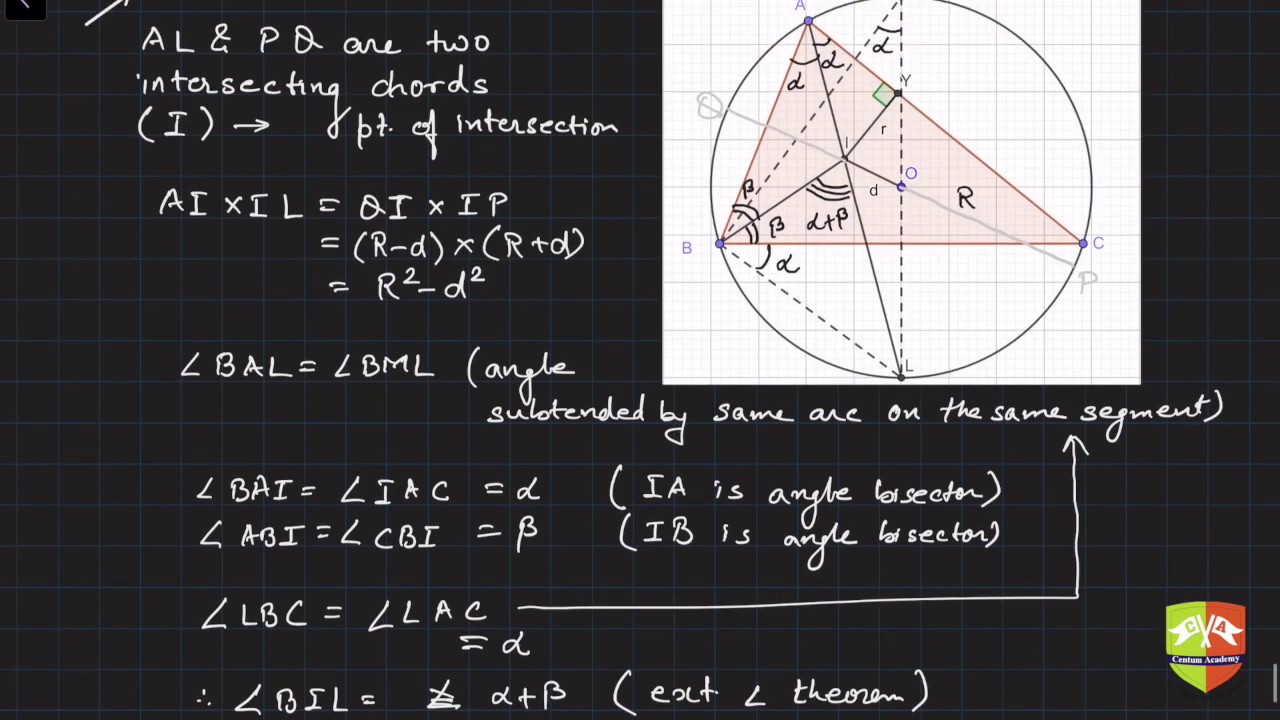 AL & PQ are two
intersecting chords
(I) → pt. of intersection
AI × IL = QI × IP
= (R-d) × (R+d)
= R² - d²
∠BAL = ∠BML (angle
subtended by same arc on the same segment)
∠BAI = ∠IAC = α (IA is angle bisector)
∠ABI = ∠CBI = β (IB is angle bisector)
∠LBC = ∠LAC
= α
∴ ∠BIL = α+β (ext. ∠ theorem)
A
α
α
α
Y
Q
r
I
O
β
d
R
β
α+β
B
C
α
P
L
C A
Centum Academy